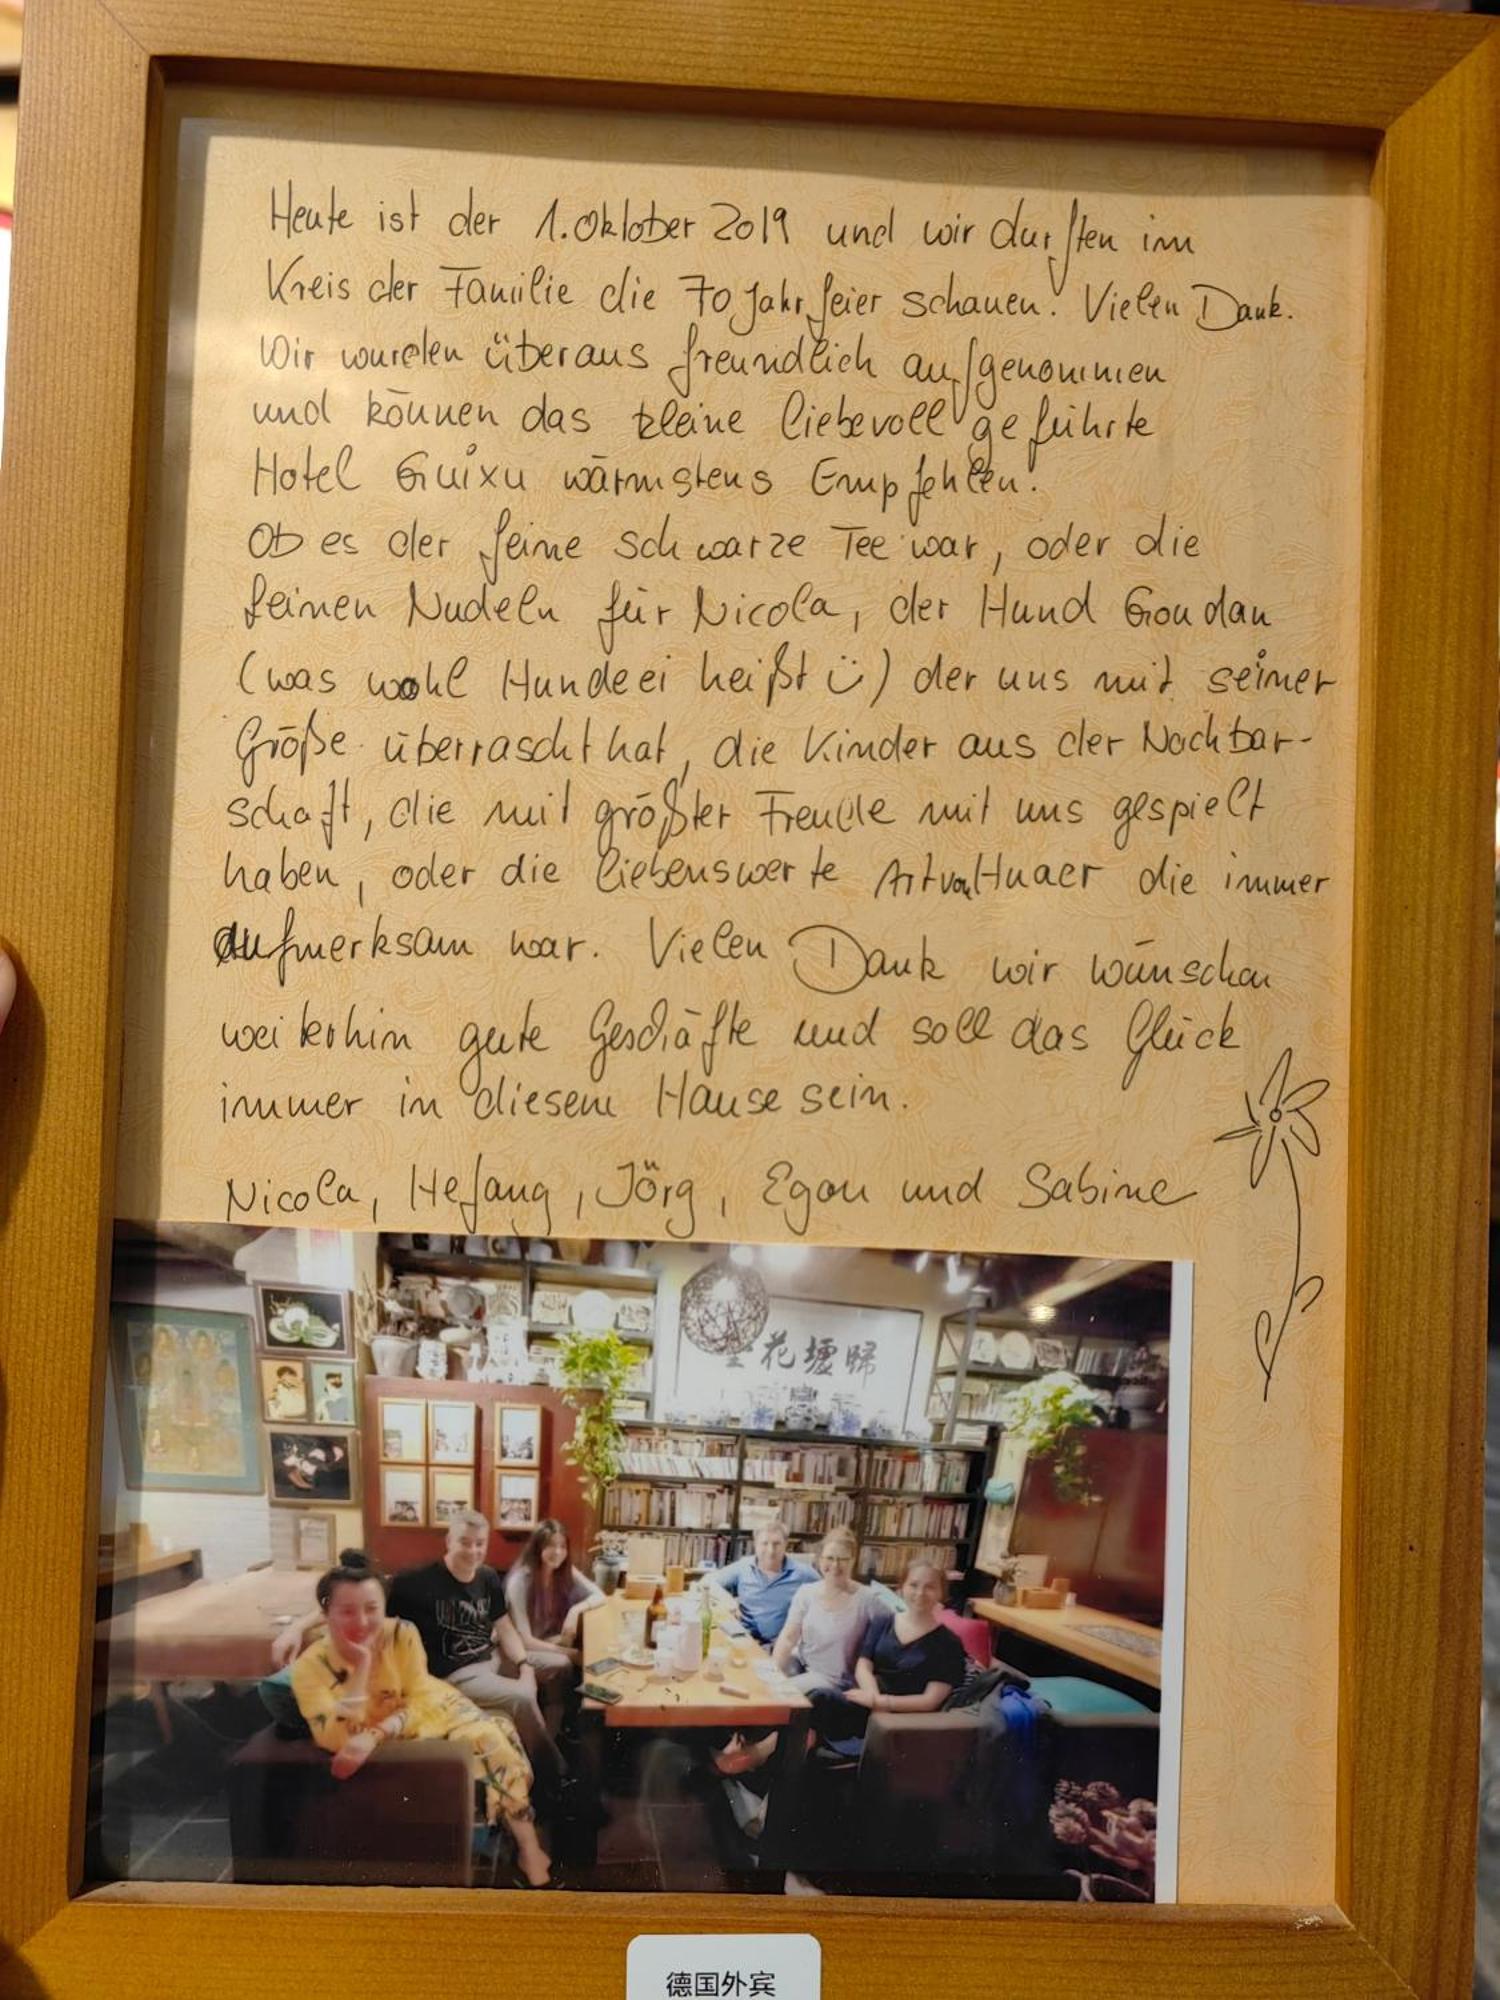 Heute ist der 1. Oktober 2019 und wir durften im
Kreis der Familie die 70 Jahrfeier schauen. Vielen Dank.
Wir wurden überaus freundlich aufgenommen
und können das kleine liebevoll geführte
Hotel Guixu wärmstens Empfehlen.
Ob es der feine schwarze Tee war, oder die
feinen Nudeln für Nicola, der Hund Goudan
(was wohl Hundeei heißt ü) der uns mit seiner
Größe überrascht hat, die Kinder aus der Nachbar-
schaft, die mit größter Freude mit uns gespielt
haben, oder die liebenswerte Art von Huaer die immer
aufmerksam war. Vielen Dank wir wünschen
weiterhin gute Geschäfte und soll das Glück
immer in diesem Hause sein.
Nicola, Hefang, Jörg, Egon und Sabine
花墟歸
德国外宾